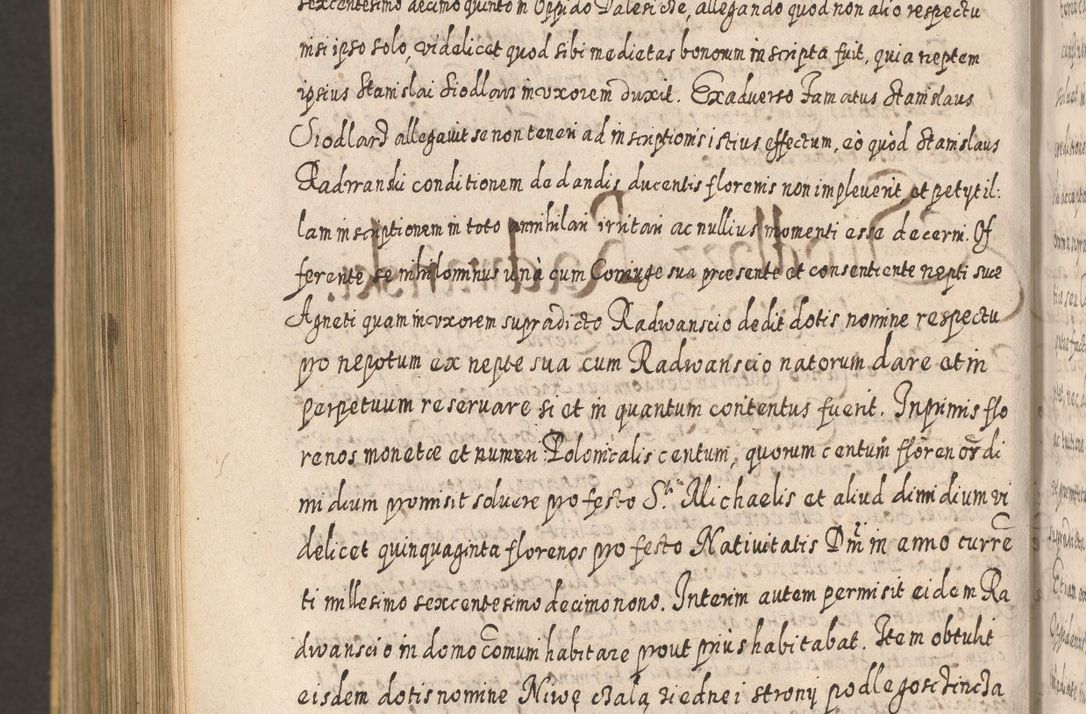 sexcentesimo decimo quinto in Oppido Dalesicze, allegando quod non alio respectu
nisi ipso solo, videlicet quod sibi medietas bonorum inscripta fuit, quia neptem
ipsius Stanislai Siodlarz in vxorem duxit. Exaduerso Famatus Stanislaus
Siodlarz allegauit se non teneri ad inscriptionis istius effectum, eò quòd Stanislaus
Radwanski conditionem de dandis ducentis florenis non impleuerit, et petyt il:
lam inscriptionem in toto annihilari irritari ac nullius momenti esse decerni. Of
ferente se nihilominus unà cum Coniuge sua præsente et consentiente nepti suæ
Agneti quam in vxorem supradicto Radwanscio dedit dotis nomine respectu
pro nepotum ex nepte sua cum Radwanscio natorum dare et in
perpetuum reseruare si et in quantum contentus fuerit. Inprimis flo
renos monetæ et numeri Polonicalis centum, quorum centum florenor̃ di
midium promisit soluere pro festo S. Michaelis et aliud dimidium vi
delicet quinquaginta florenos pro festo Natiuitatis Dni in anno curre
ti millesimo sexcentesimo decimo nono. Interim autem permisit eidem Ra
dwanscio in domo comuni habitare prout prius habitabat. Item obtulit
eisdem dotis nomine Niwę cżalą ziednei strony podle goscincza